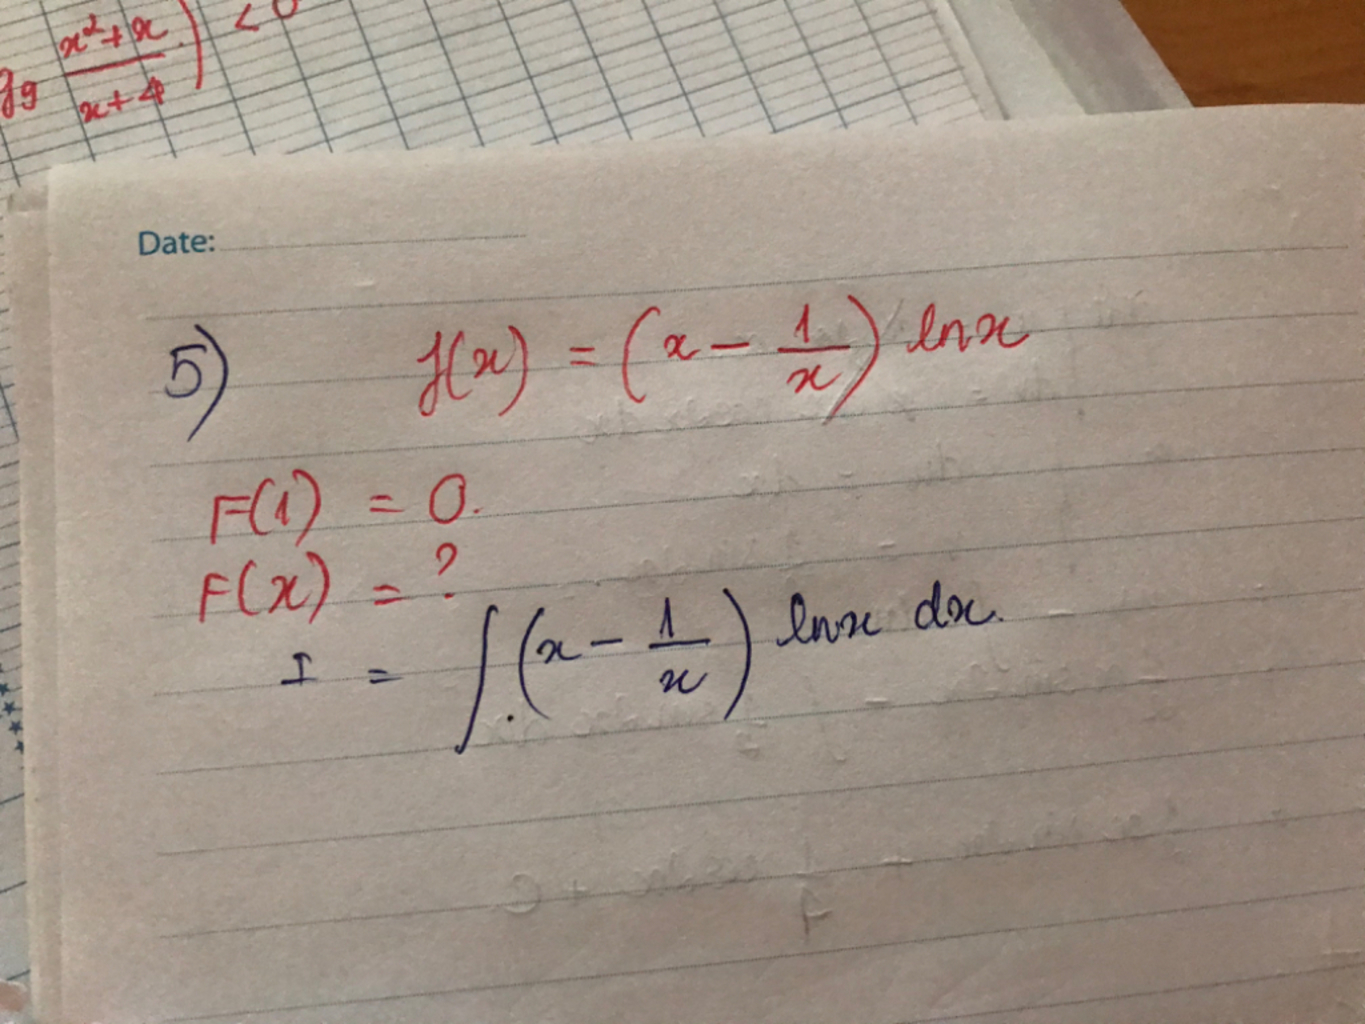 x²+x / x+4 ) < 0
Date:
5) f(x) = (x - 1/x) lnx
F(1) = 0.
F(x) = ?
I = ∫(x - 1/x) lnx dx.